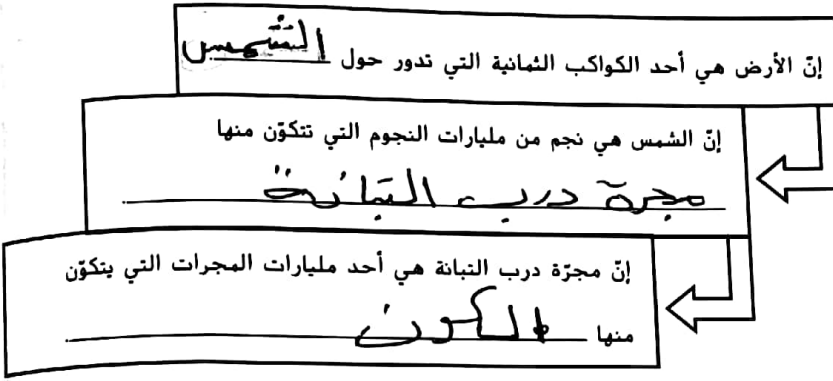 إنّ الأرض هي أحد الكواكب الثمانية التي تدور حول الشمس
إنّ الشمس هي نجم من مليارات النجوم التي تتكوّن منها
مجرة درب التبانة
إنّ مجرّة درب التبانة هي أحد مليارات المجرات التي يتكوّن
منها الكون